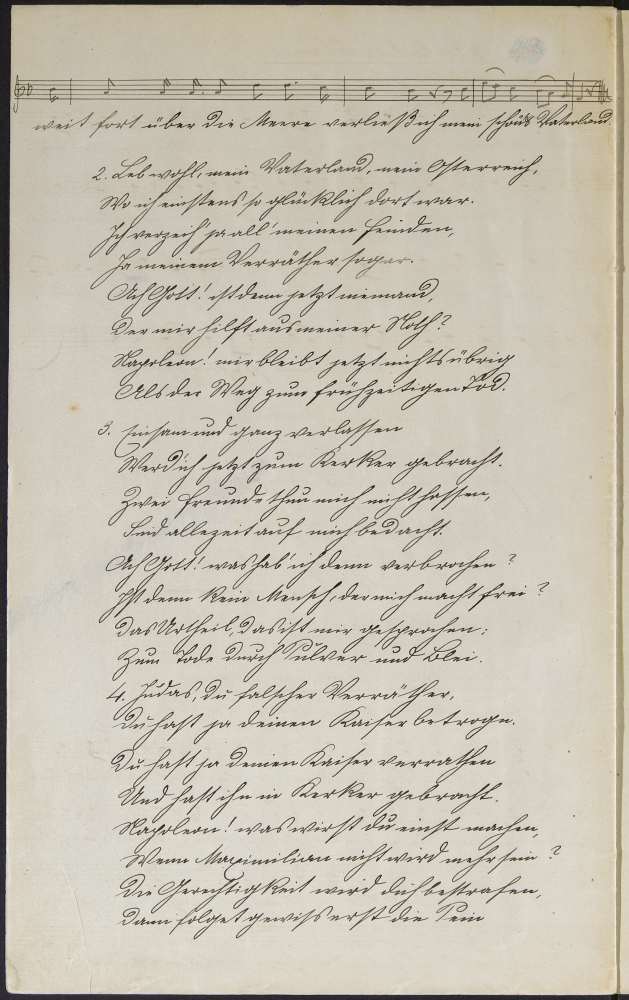 weit fort über die Meere verließ ich mein schönes Vaterland.
2. Leb wohl, mein Vaterland, mein Österreich,
Wo ich einstens so glücklich dort war.
Ich verzeih' ja all' meinen Feinden,
Ja meinem Verräther sogar.
Ach Gott! ist denn jetzt niemand,
Der mir hilft aus meiner Noth?
Napoleon! mir bleibt jetzt nichts übrig
Als der Weg zum frühzeitigen Tod.
3. Einsam und ganz verlassen
Werd ich jetzt zum Kerker gebracht.
Zwei Freunde thun mich nicht hassen,
Sind allezeit auf mich bedacht.
Ach Gott! was hab' ich denn verbrochen?
Ist denn kein Mensch, der mich macht frei?
Das Urtheil, das ist mir gesprochen:
Zum Tode durch Pulver und Blei.
4. Judas, du falscher Verräther,
Du hast ja deinen Kaiser betrogn.
Du hast ja deinen Kaiser verrathen
Und hast ihn in Kerker gebracht.
Napoleon! was wirst du einst machen,
Wenn Maximilian nicht wird mehr sein?
Die Gerechtigkeit wird dich bestrafen,
Dann folget gewiss erst die Pein